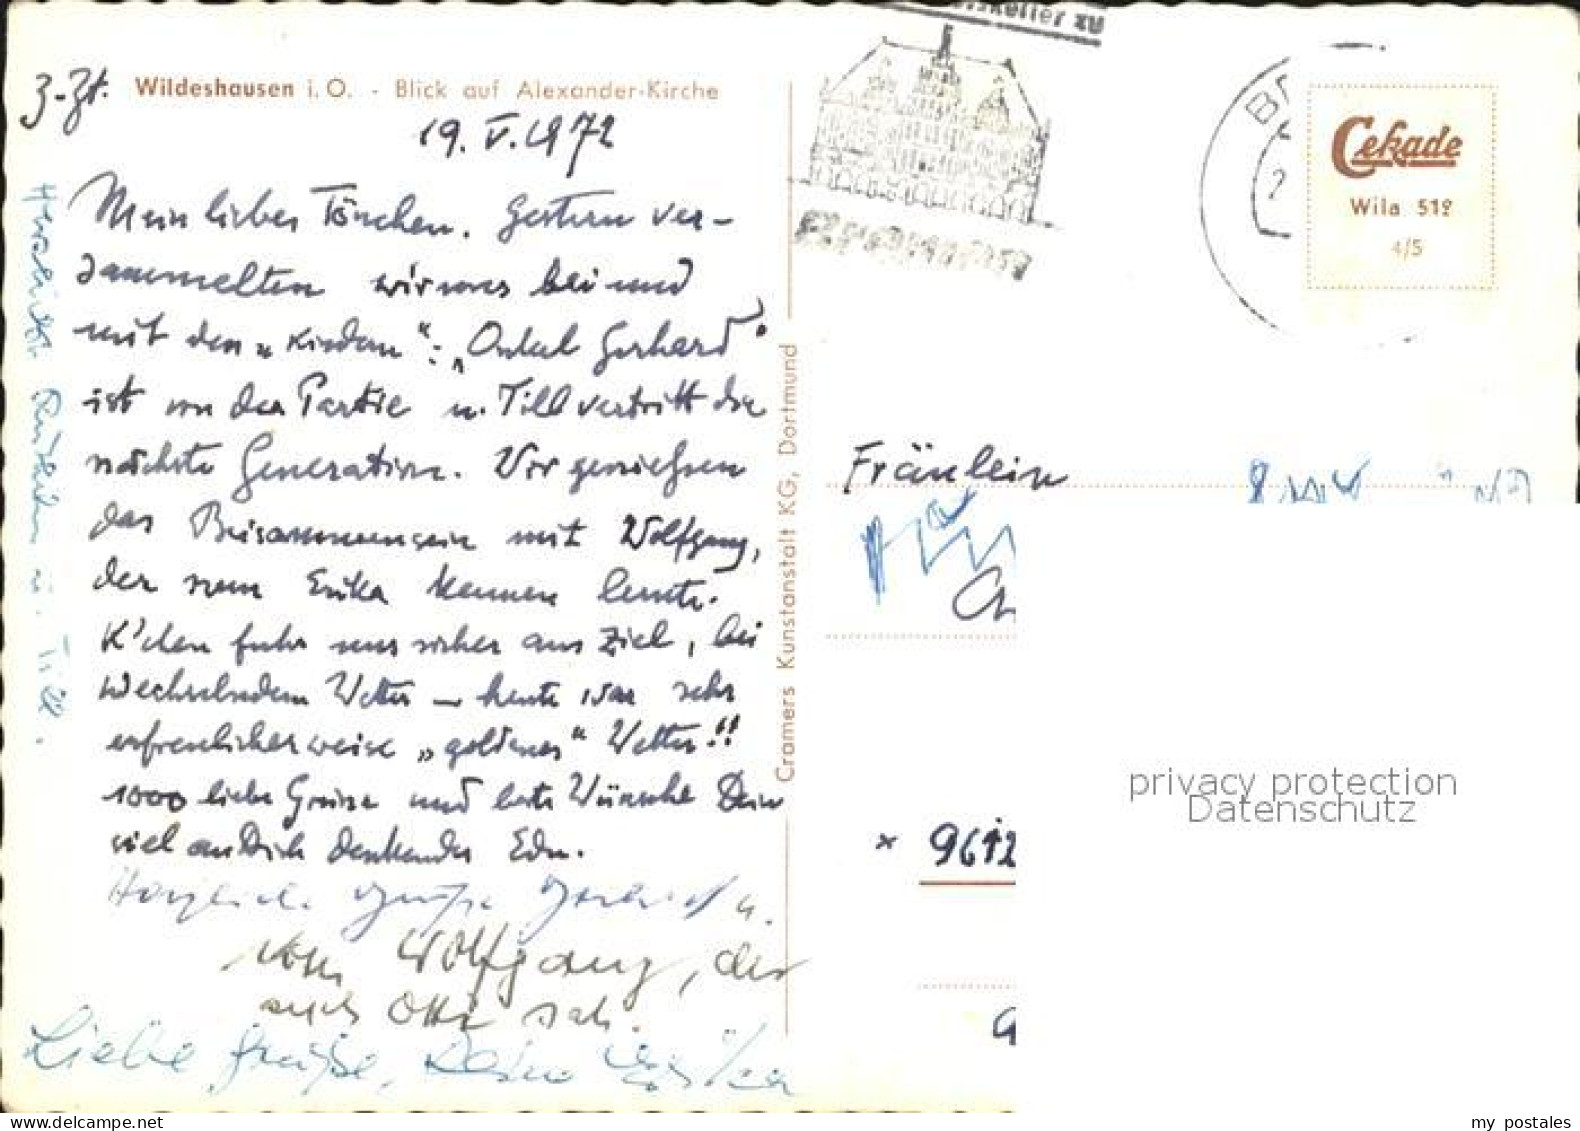 z. Zt. Wildeshausen i. O. - Blick auf Alexander-Kirche
19. V. 1972
Mein liebes Tönchen. Gestern ver-
sammelten wir uns bei und
mit den „Kindern": „Onkel Gerhard"
ist von der Partie u. Till vertritt die
nächste Generation. Wir geniessen
das Beisammensein mit Wolfgang,
der nun Erika kennen lernte.
K'chen fuhr uns sicher ans Ziel, bei
wechselndem Wetter – heute war sehr
erfreulicherweise „goldenes" Wetter!!
1000 liebe Grüsse und beste Wünsche Dein
viel an Dich denkender Edu.
Herzliche Grüße Gerhard u.
vom Wolfgang, der
auch Otti sah.
Liebe Grüße, Deine Erika
Herzlichst u. Till.
Cramers Kunstanstalt KG, Dortmund
skeller zu
BR
2
Cekade
Wila 519
4/5
Fräulein
* 9612
privacy protection
Datenschutz
my postales